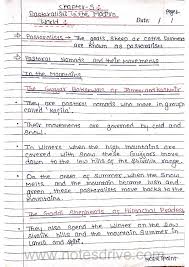 Chapter-5
Page 1
Pastoralists in the Modern World
Date: / /
Pastoralists → The goats, sheep or cattle
are known as pastoralists
Pastoral Nomads and their Movements
In the Mountains
The Gujjar Bakarwals of Jammu and Kashmir
They are pastoral nomads who move in group
called "kafila".
Their movements are governed by cold and
snow.
In winters when the high mountains are
covered with snow these Gujjars move
down to the low hills of the Shiwalik range.
On the onset of summer when the snow
melts and the mountains become lush and
green these pastoralists move back to the
mountains.
The Gaddi Shepherds of Himachal Pradesh
They also spend the winter on the low
Shiwalik hills and the summer in
Lahul and Spiti.
www.notesdrive.com